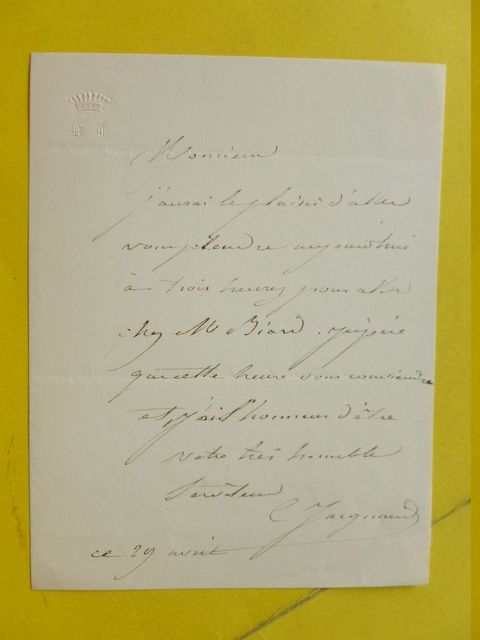 Monsieur
j'aurai le plaisir d'aller
vous prendre aujourd'hui
à trois heures pour aller
chez Mr Biard. j'espère
que cette heure vous conviendra
et j'ai l'honneur d'être
votre très humble
Serviteur
C Jacquand
ce 29 avril